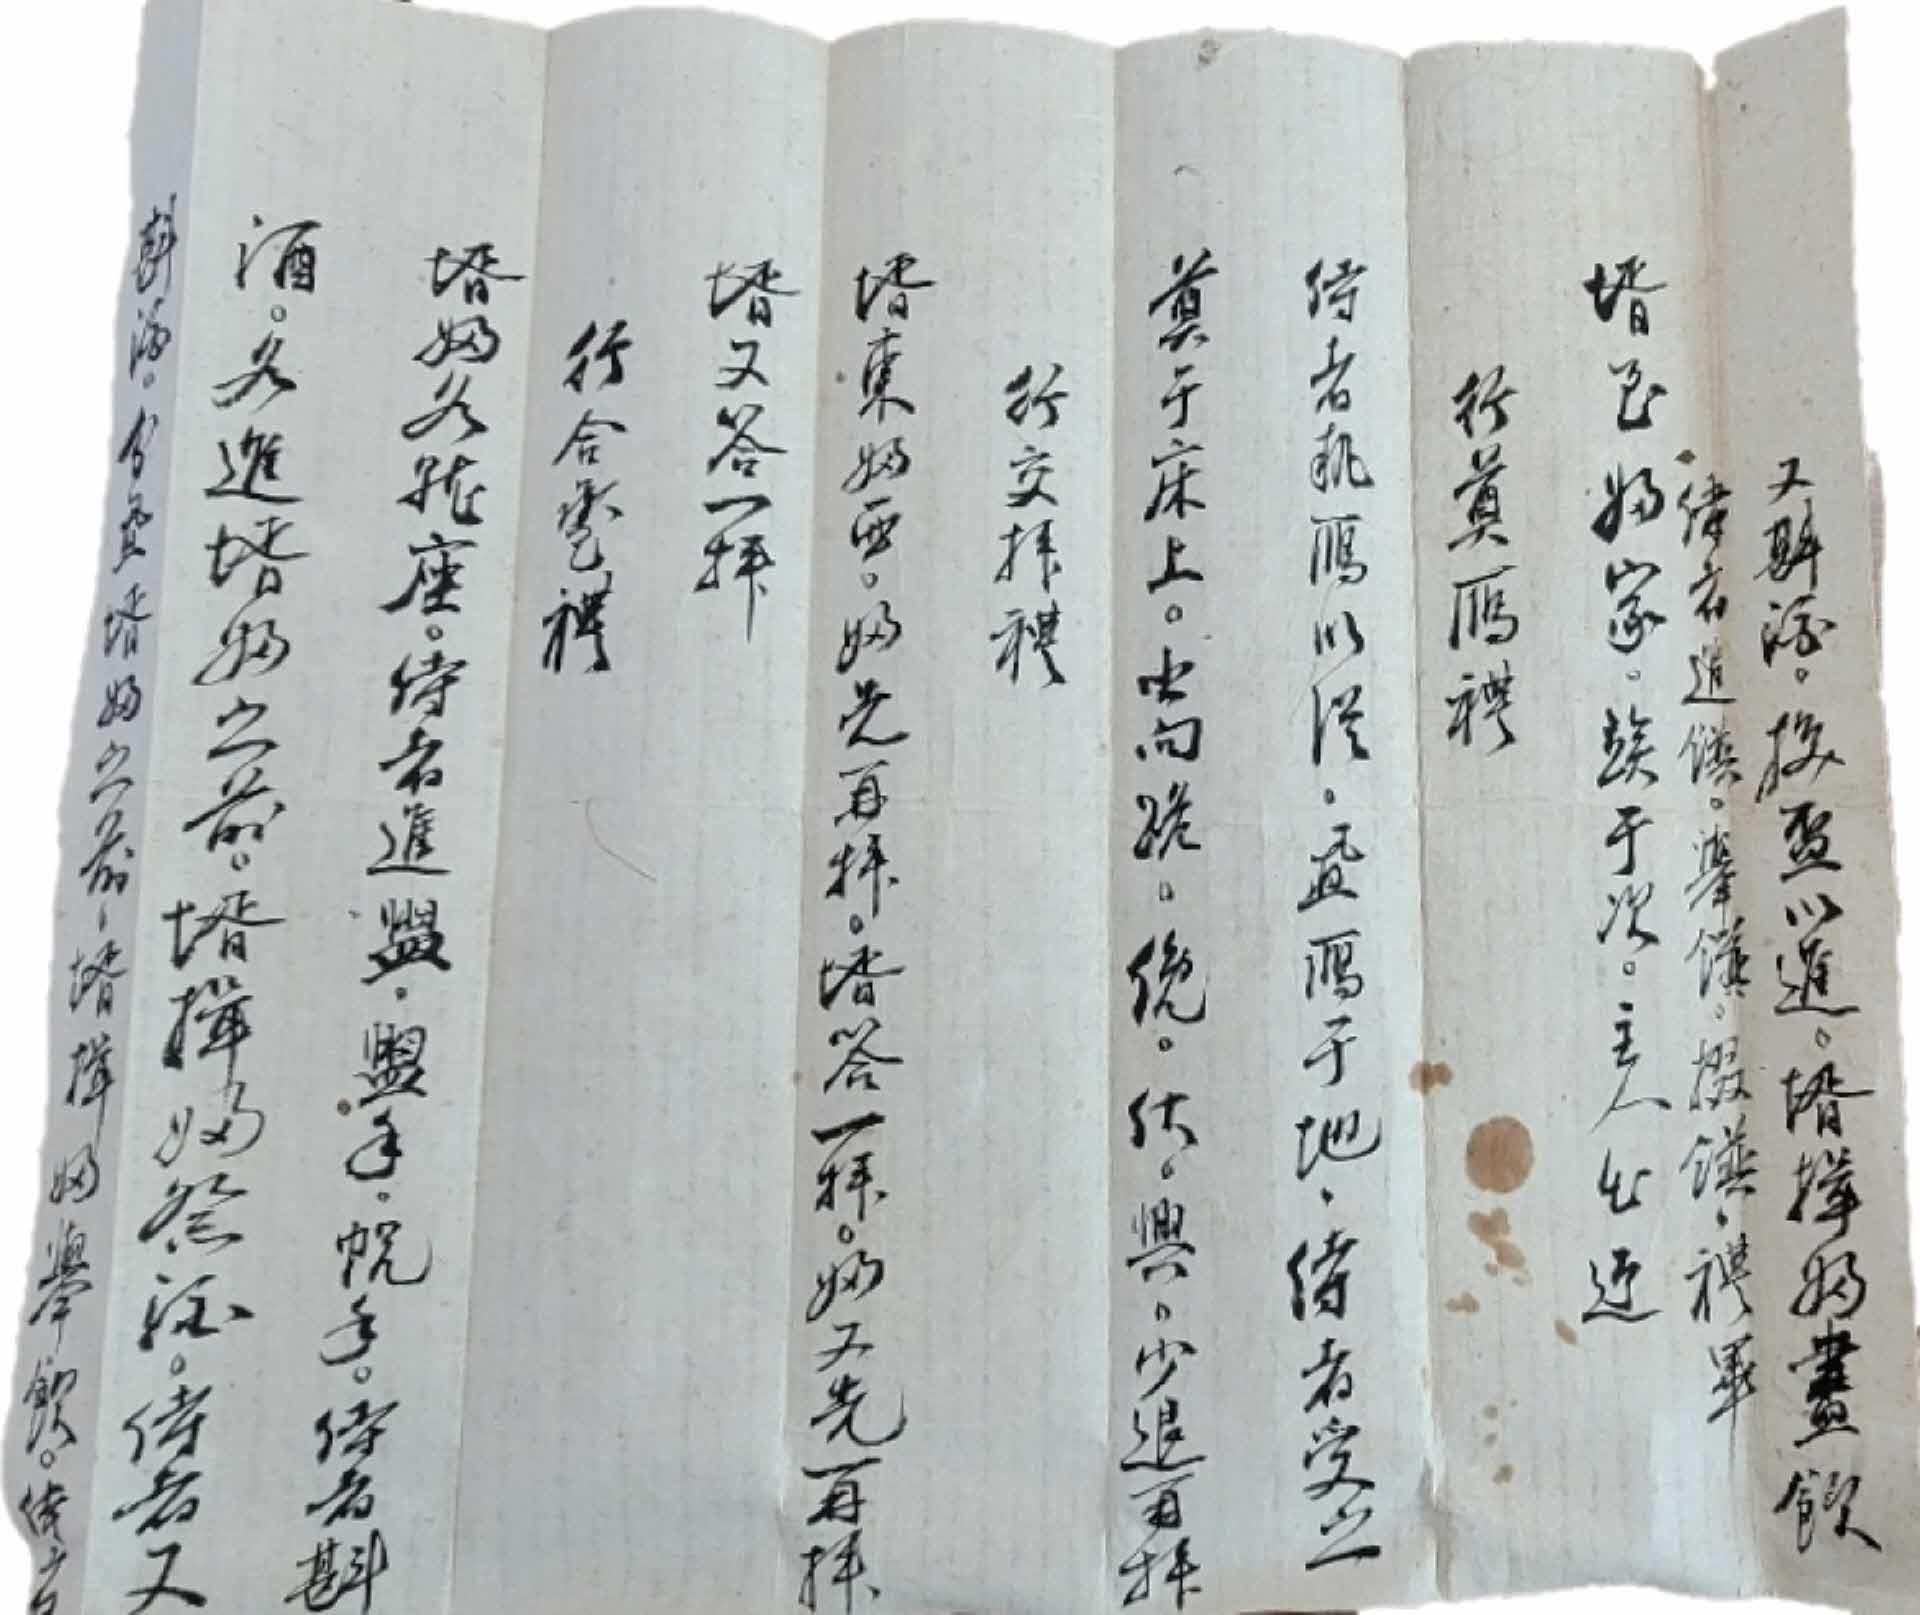 又斟酒。授盃以進。壻揖婦盡飮
侍者進饌。擧饌。掇饌。禮畢
壻至婦家。竢于次。主人出迎
行奠鴈禮
侍者執鴈以從。置鴈于地。侍者受之
奠于床上。北向跪。俛。伏。興。少退再拜
行交拜禮
壻東婦西。婦先再拜。壻答一拜。婦又先再拜
壻又答一拜
行合巹禮
壻婦各就座。侍者進盥。盥手。帨手。侍者斟
酒。各進壻婦之前。壻揖婦祭酒。侍者又
斟酒。分置壻婦之前。壻揖婦擧飮。侍者